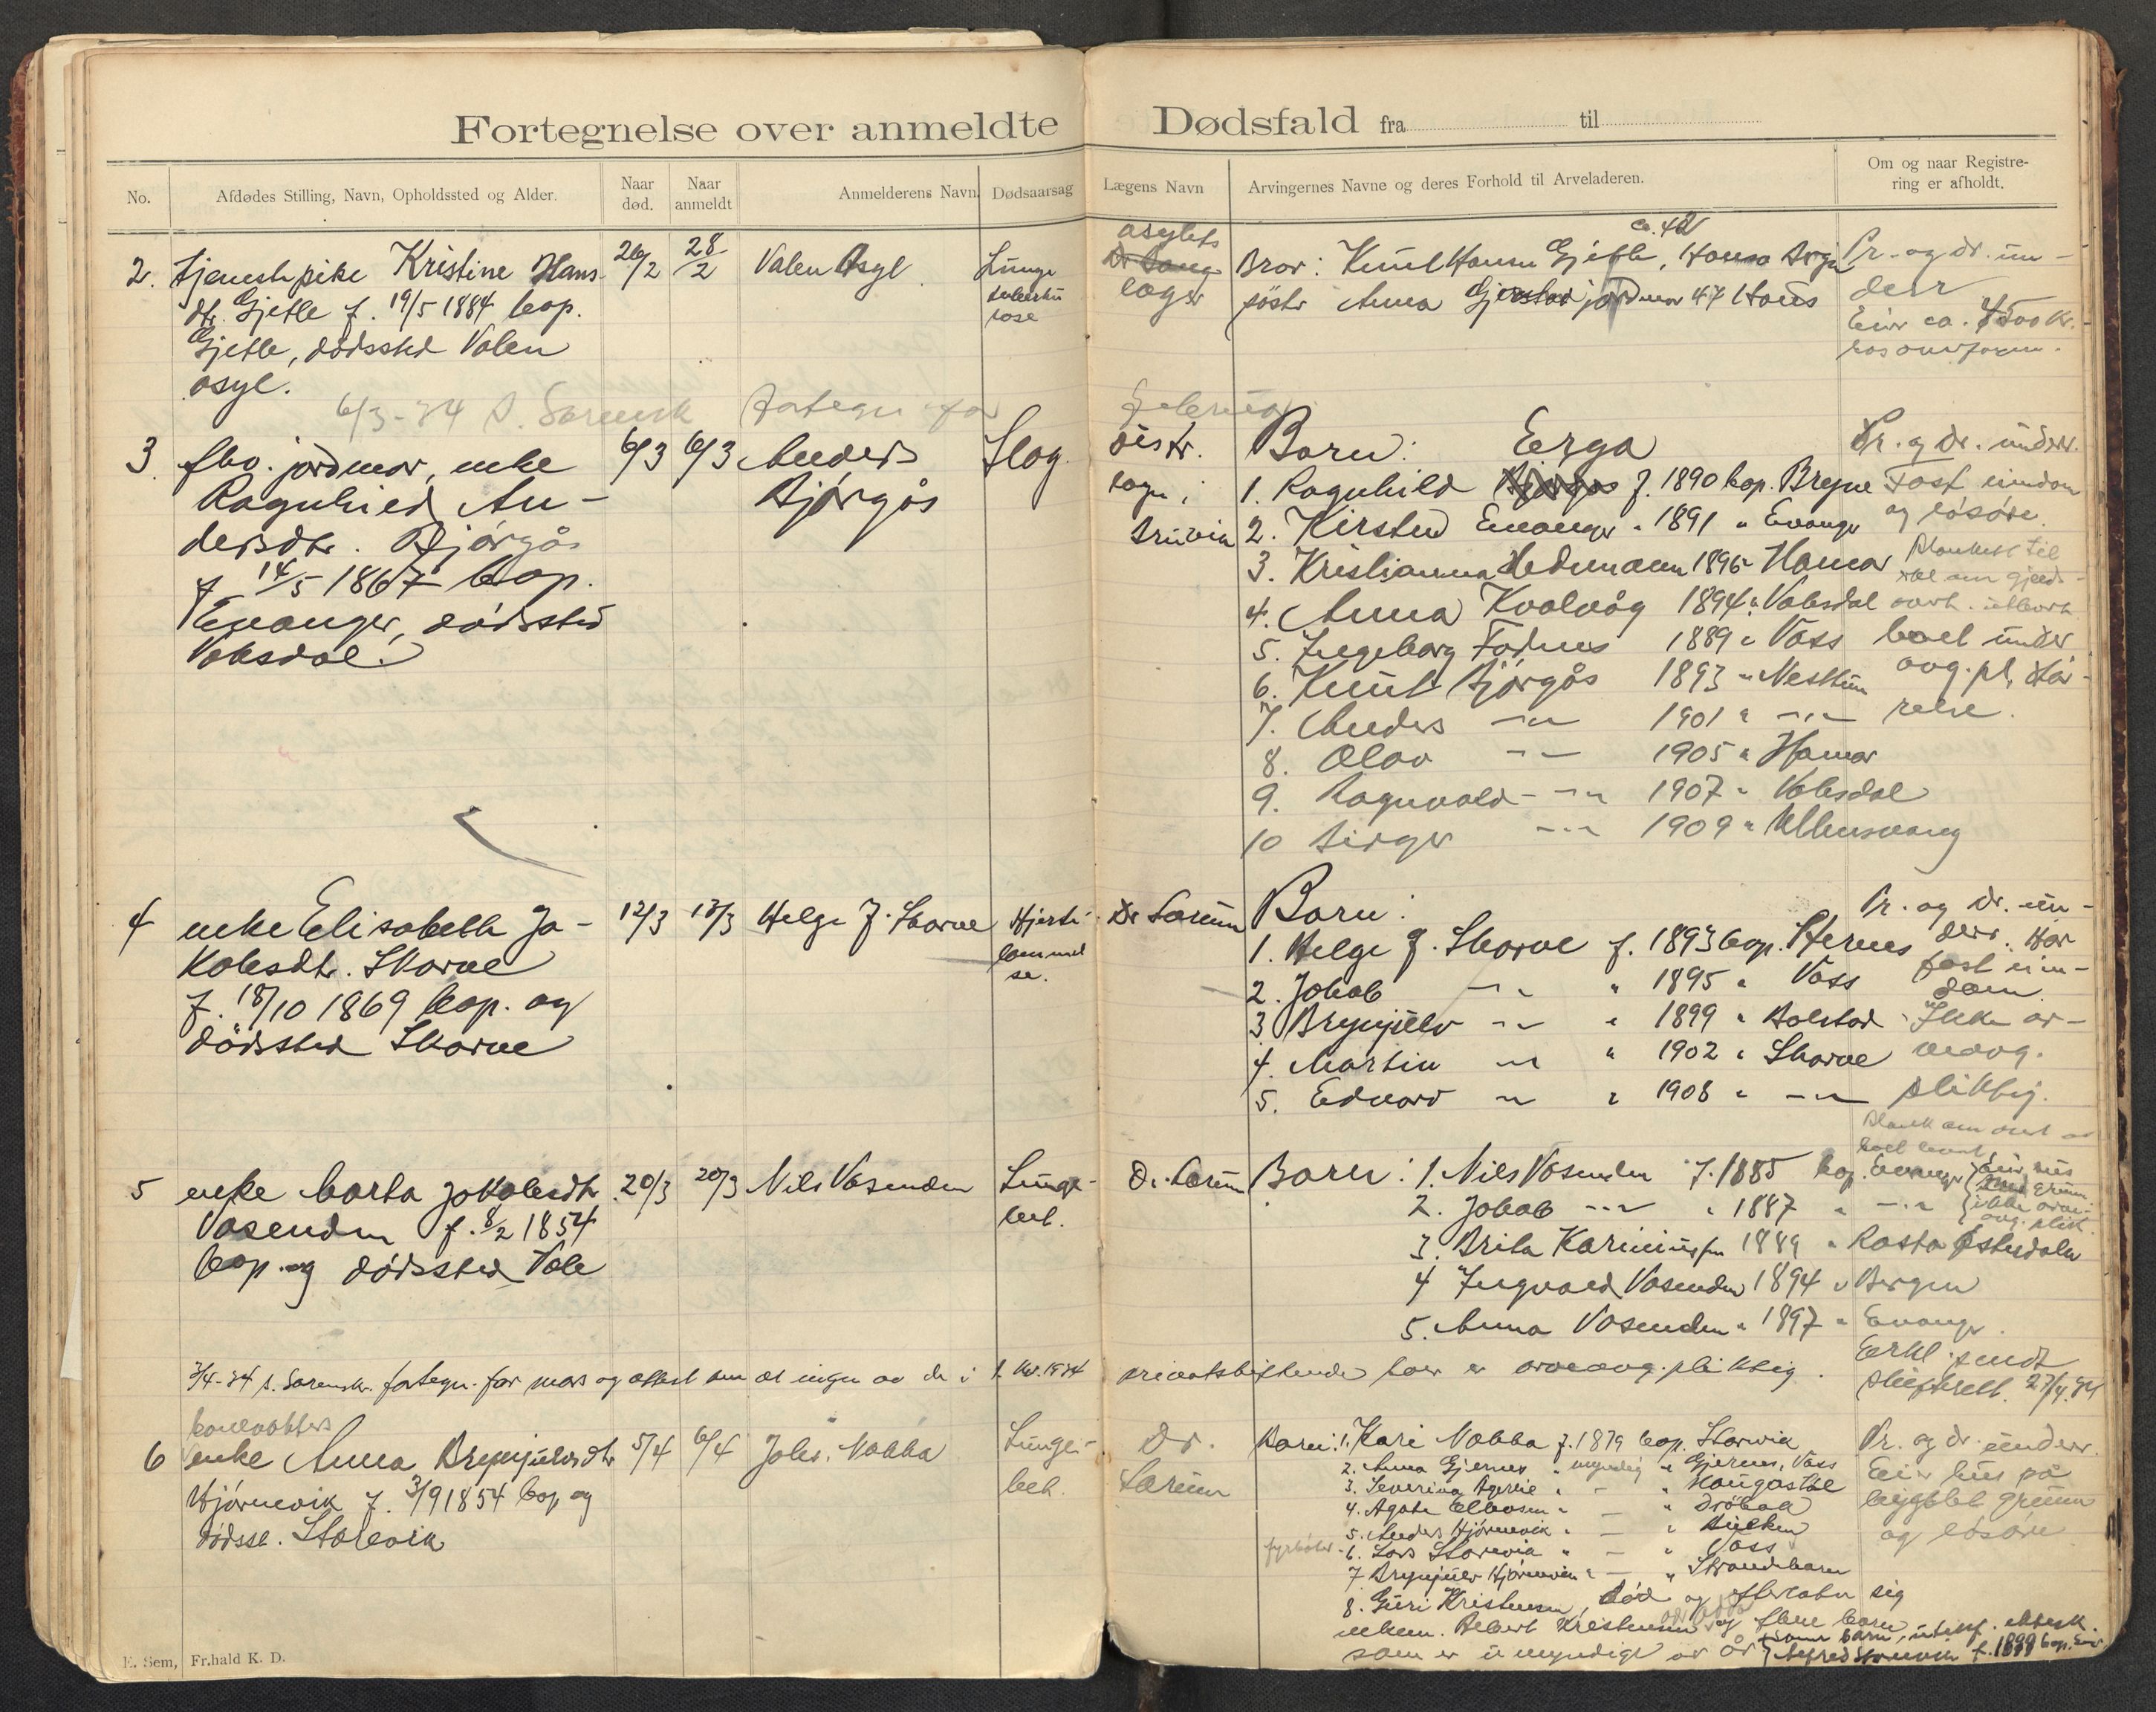 Fortegnelse over anmeldte Dødsfald fra til
No.
Afdødes Stilling, Navn, Opholdssted og Alder.
Naar død.
Naar anmeldt
Anmelderens Navn.
Dødsaarsag
Lægens Navn
Arvingernes Navne og deres Forhold til Arveladeren.
Om og naar Registrering er afholdt.
2. tjenestepike Kristine Hans-
dtr. Gjetle f. 19/5 1884 bop.
Gjetle, dødssted Valen
asyl.
26/2
28/2
Valen Asyl
Lunge
tuberku
lose
asylets
læge
ca. 42
Bror: Knut Hansen Gjetle, Hamre
søster Anna Gjerstad jordmor 47 Haus
Pr. og dr. un-
derr
Eier ca. 4500 kr.
hos overform.
6/3-34 s. Sorensk fortegn for februar
3. fhv. jordmor, enke
Ragnhild An-
dersdtr. Bjørgås
f. 14/5 1867 bop.
Evanger, dødssted
Voksdal.
6/3
6/3
Anders
Bjørgås
Slag.
distr.
lægn i
Bruvik
Barn: Erga
1. Ragnhild Bjørgås f. 1890 bop. Bryne
2. Kirsten Evanger " 1891 " Evanger
3. Kristianna Hedemann 1896 - Hamar
4. Anna Kvalvåg 1894 " Voksdal
5. Ingeborg Fadnes 1889 " Voss
6. Knut Bjørgås 1893 " Nesttun
7. Anders -"- 1901 " -"-
8. Olav -"- 1905 " Hamar
9. Ragnvald -"- 1907 " Voksdal
10 Birger -"- 1909 " Ullensvang
Pr. og dr. underr.
Fast eiendom
og løsøre.
Blankett til
overt. utlevert
boet under
avg.pl. stør-
relse.
4 enke Elisabeth Ja-
kobsdtr. Skorve
f. 18/10 1869 bop. og
dødssted Skorve
12/3
13/3
Helge J. Skorve
Hjerte-
lammel
se.
Dr Larum
Barn:
1. Helge J. Skorve f. 1893 bop. Sternes
2. Jakob -"- " 1895 " Voss
3 Brynjulv -"- " 1899 " Bolstad
4. Martin -"- " 1902 " Skorve
5. Edvard -"- " 1908 " -"-
Pr. og dr. un-
derr. Har
fast eien-
dom.
Ikke ar-
veavg.
pliktig.
5 enke Marta Jakobsdtr
Vasenden f. 8/2 1854
bop. og dødssted Vale
20/3
20/3
Nils Vasenden
Lunge-
bet.
Dr. Larum
Barn: 1. Nils Vasenden f. 1885 bop. Evanger
2. Jakob -"- " 1887 " -"-
3. Brita Kariniussen 1889 " Rasta Østerdalen
4 Ingvald Vasenden 1894 " Bergen
5. Anna Vasenden " 1897 " Evanger
Eier hus
grunn
ikke arve-
avg. plik
3/4-34 s. Sorensk. fortegn. for mars og attest om at ingen av de i 1. kv. 1934 privatskiftende boer er arveavg. pliktig.
Erkl. sendt
skifterett. 27/4.34
6 enke Anna Brynjulvsdtr
Hjørnevik f. 3/9 1854 bop og
dødsst. Storevik
5/4
6/4
Johs. Nabba
Lunge-
bet.
Dr.
Larum
Barn: 1. Kari Nabba f. 1879 bop. Storvik
2. Anna Gjernes " myndig " Gjernes, Voss
3. Severina " - " Haugastøl
4. Agata " - " Drøbak
5. Anders Hjørnevik " - " Bulken
fyrbøter - 6. Lars Storevik " - " Voss
7 Brynjulv Hjørnevik " - " Strandebarm
8. Guri Kristensen, død og etterlater sig
enkem. Albert Kristensen og flere barn
som er umyndige
Alfred Storevik f. 1899 bop.
Pr. og dr. underr.
Eier hus på
bygslet grunn
og løsøre
E. Sem, Fr.hald K. D.